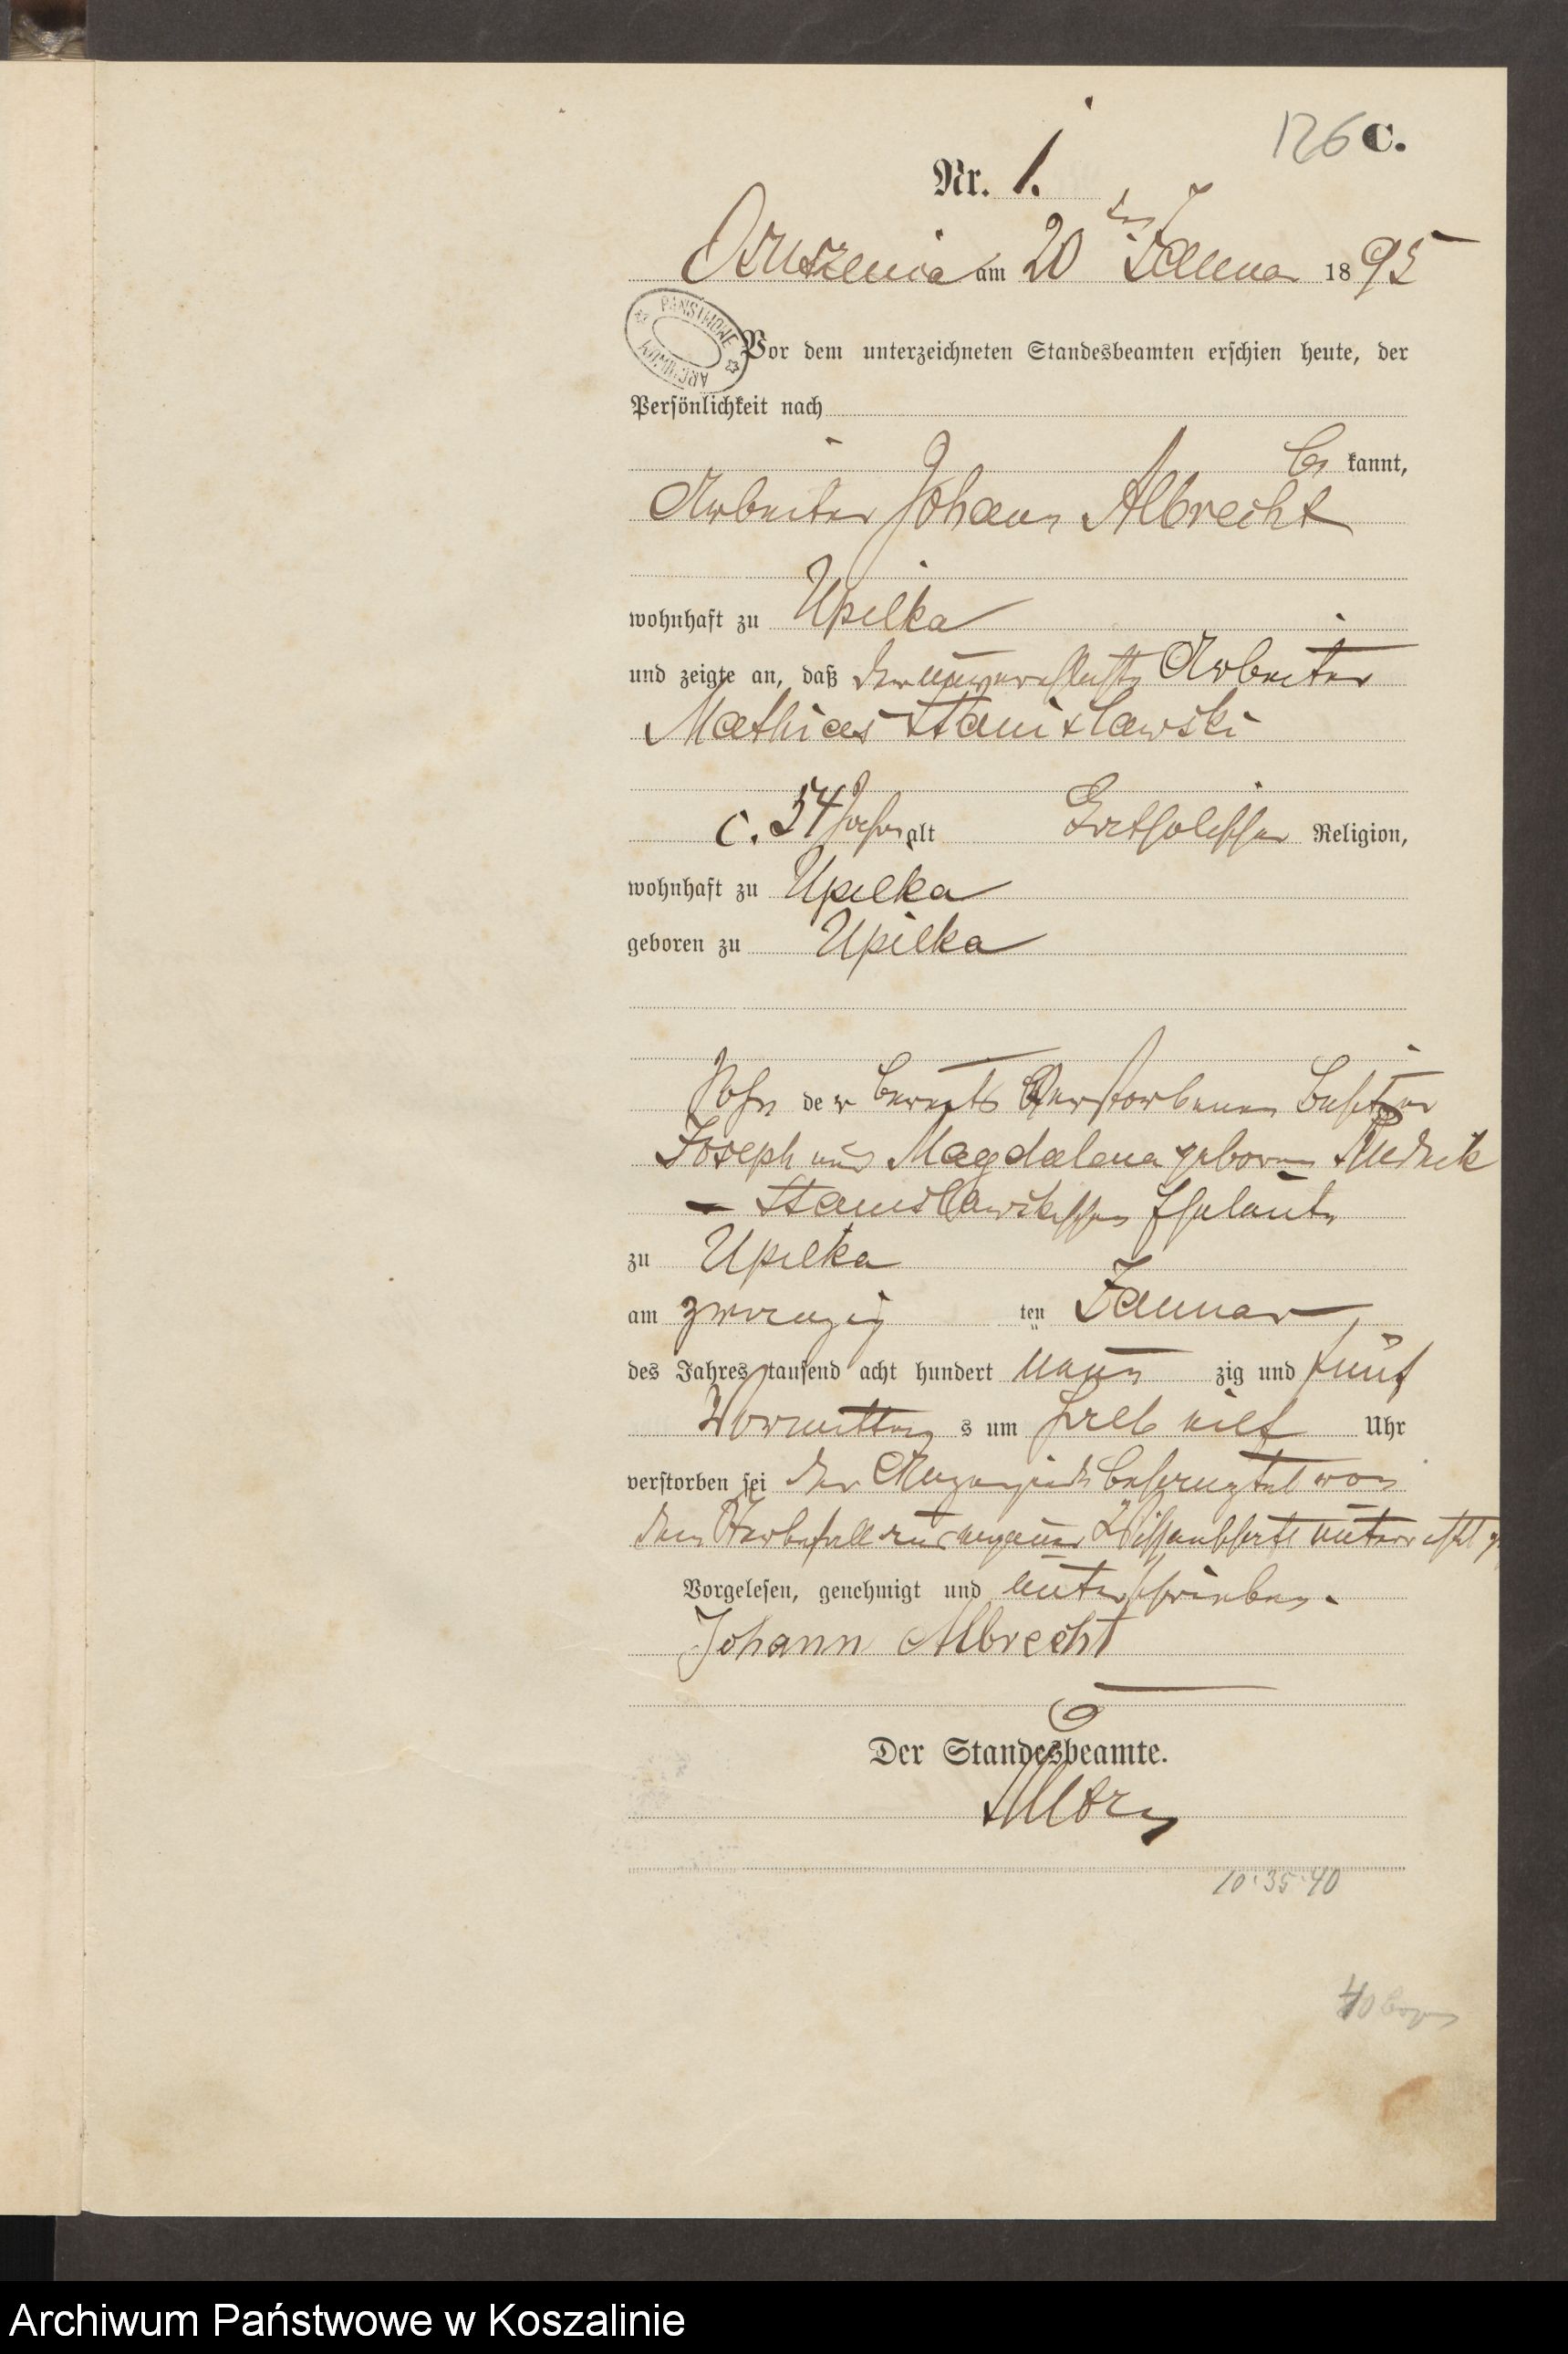 126 C.
Nr. 1.
Oszuszenica am 20 ten Januar 1895
PAŃSTWOWE ARCHIWUM
Vor dem unterzeichneten Standesbeamten erschien heute, der
Persönlichkeit nach
be kannt,
Arbeiter Johann Albrecht
wohnhaft zu Upilka
und zeigte an, daß der unverehelichte Arbeiter
Mathias Stanislawski
c. 54 Jahre alt Katholischer Religion,
wohnhaft zu Upilka
geboren zu Upilka
Sohn der bereits Verstorbenen Besitzer
Joseph und Magdalena geborene
– Stanislawskischen Eheleute
zu Upilka
am zwanzig ten Januar
des Jahres tausend acht hundert neun zig und fünf
Vormittag s um halb elf Uhr
verstorben sei der Anzeigende bescheinigt von
dem Sterbefall aus eigener Wissenschaft unterrichtet
Vorgelesen, genehmigt und unterschrieben.
Johann Albrecht
Der Standesbeamte.
10:35:40
40
Archiwum Państwowe w Koszalinie